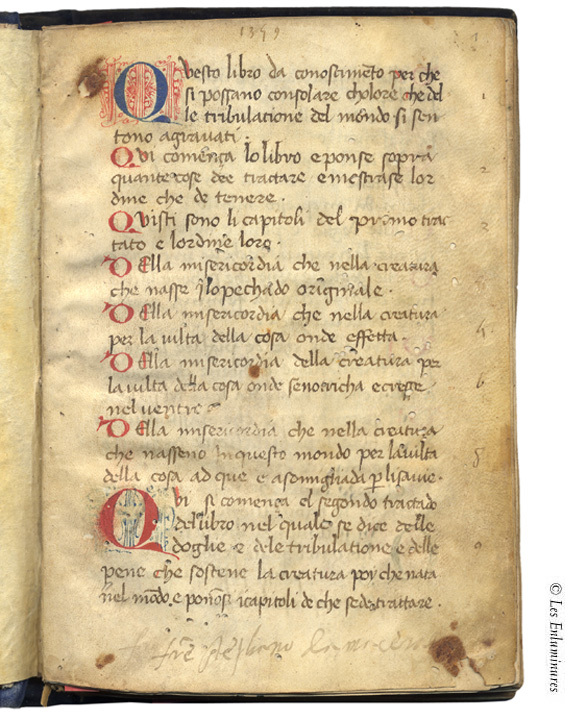 1399
Questo libro da conoscimēto per che
si possano consolare choloro che del
le tribulatione del mondo si sen
tono agravati.
Qui comença lo libro e ponse sopra
quante cose dee tractare e mestrase lor
dine che de tenere.
Quisti sono li capitoli del primo trac
tato e lordine loro.
Della misericordia che nella creatura
che nasse ī lo pechado originale.
Della misericordia che nella creatura
per la vilta della cosa onde e fetta.
Della misericordia della creatura per
la vilta della cosa onde se notricha e crege
nel ventre
Della misericordia che nella creatura
che nasseno in questo mondo per la vilta
della cosa ad que e asomigliada
Qui si comença el segondo tractado
del libro nel quale se dice delle
doglie e de le tribulatione e delle
pene che sostene la creatura poy che nata
nel mōdo, e ponōsi i capitoli de che se de trattare.
© Les Enluminures